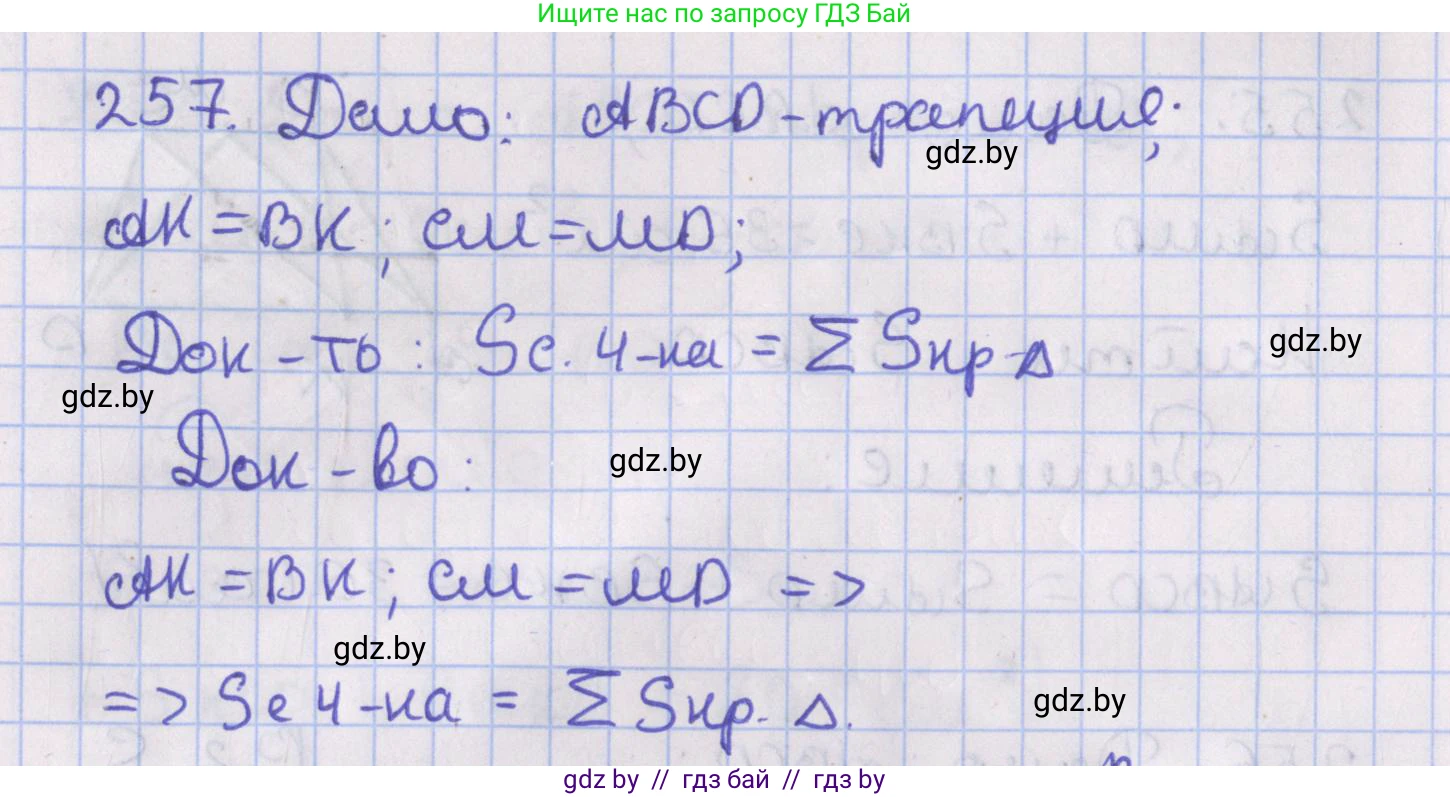 Ищите нас по запросу ГДЗ Бай
257. Дано: ABCD - трапеция;
gdz.by
AK = BK; CM = MD;
Док-ть: Sс. 4-ка = Σ Sкр Δ
gdz.by
gdz.by
Док-во:
gdz.by
AK = BK; CM = MD =>
gdz.by
=> Sс 4-ка = Σ Sкр. Δ.
gdz.by
gdz by // гдз бай // гдз by